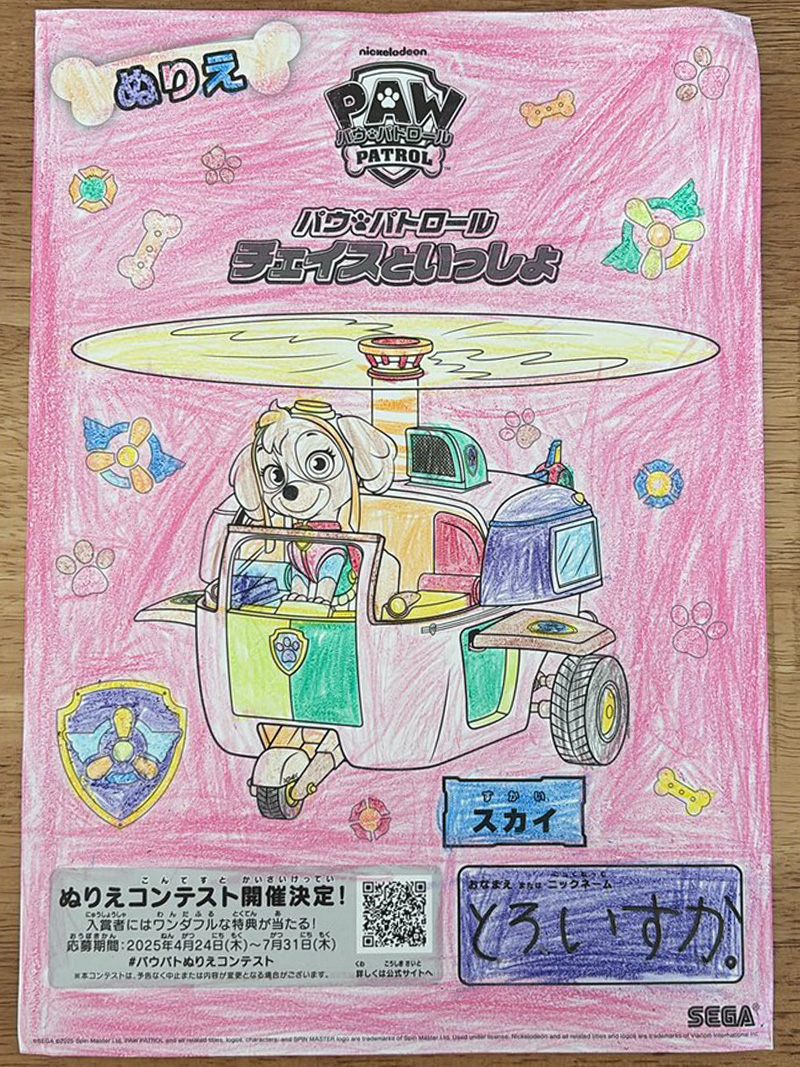 ぬりえ
nickelodeon
PAW
パウ・パトロール
PATROL
パウ・パトロール
チェイスといっしょ
すかい
スカイ
こんてすと かいさいけってい
ぬりえコンテスト開催決定!
にゅうしょうしゃ わんだふる とくてん あ
入賞者にはワンダフルな特典が当たる!
おうぼきかん ねん がつ にち もく がつ にち もく
応募期間:2025年4月24日(木)~7月31日(木)
#パウパトぬりえコンテスト
※本コンテストは、予告なく中止または内容が変更となる場合がございます。
くわ こうしきさいと
詳しくは公式サイトへ
おなまえ または ニックネーム
とろいすか。
SEGA
©SEGA ©2025 Spin Master Ltd. PAW PATROL and all related titles, logos, characters; and SPIN MASTER logo are trademarks of Spin Master Ltd. Used under license. Nickelodeon and all related titles and logos are trademarks of Viacom International Inc.